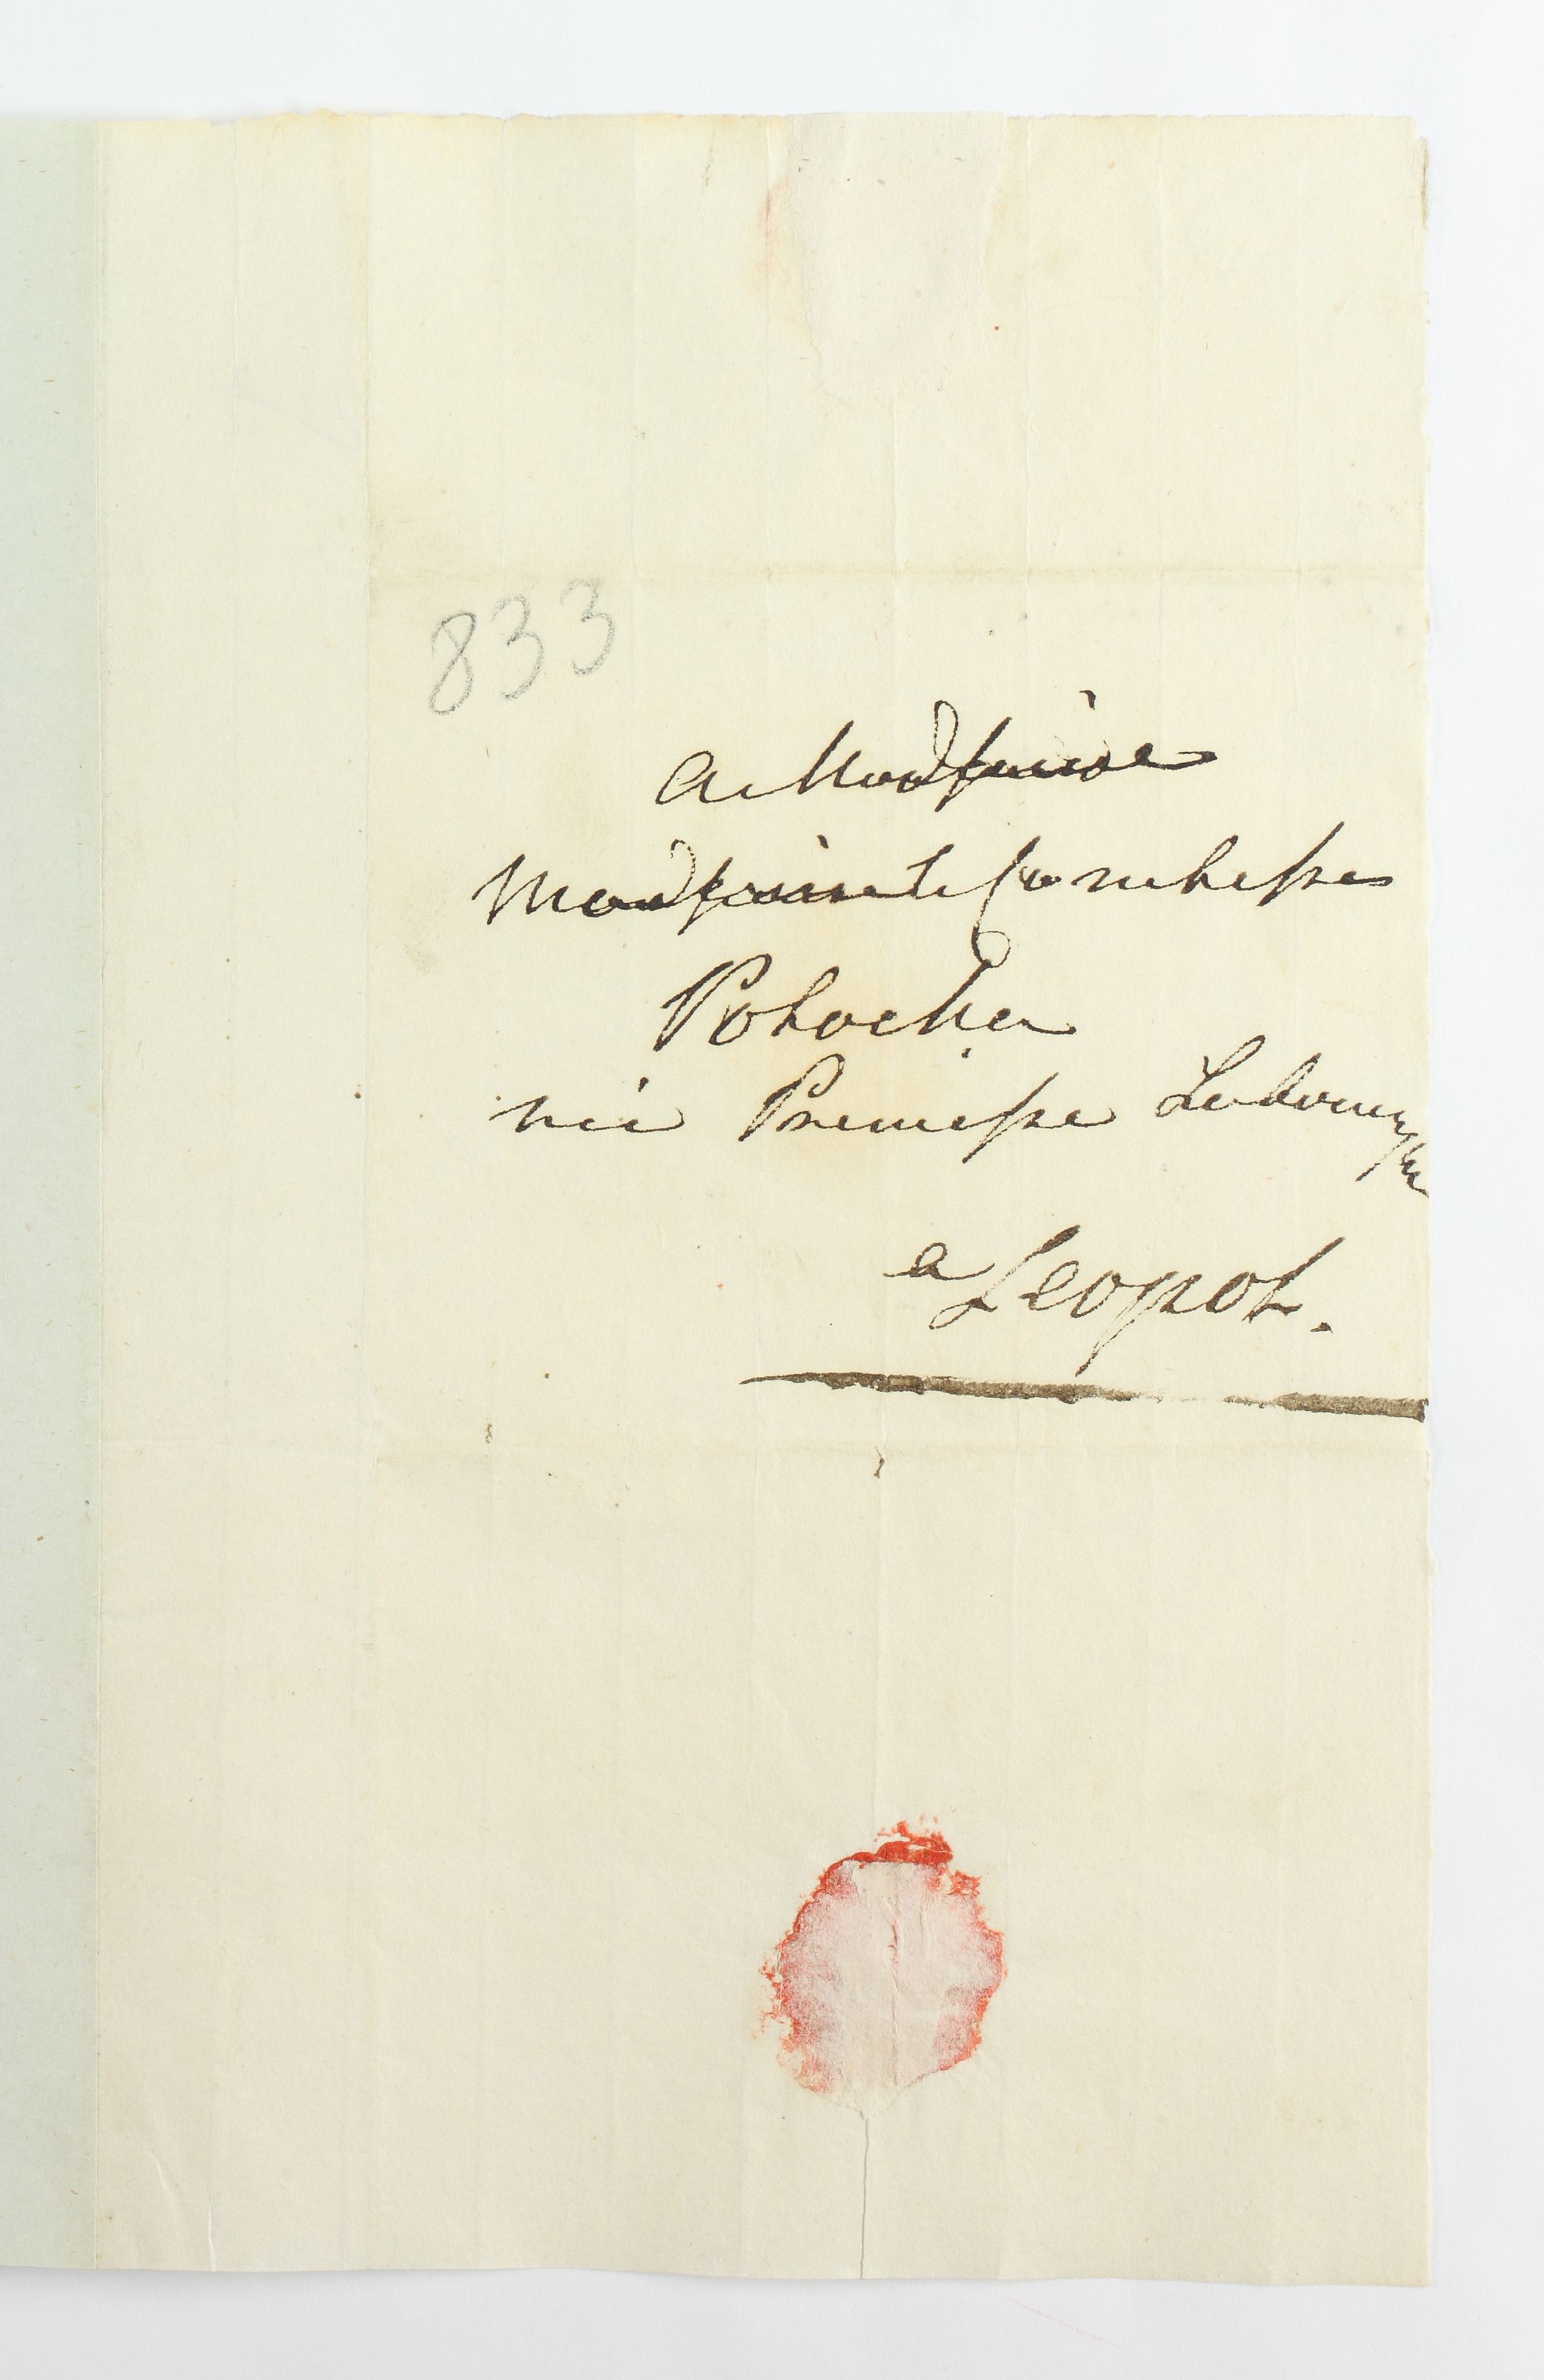 833
a Madame
Madame la Comtesse
Potocka
née Princesse Lubomirska
a Leopol.